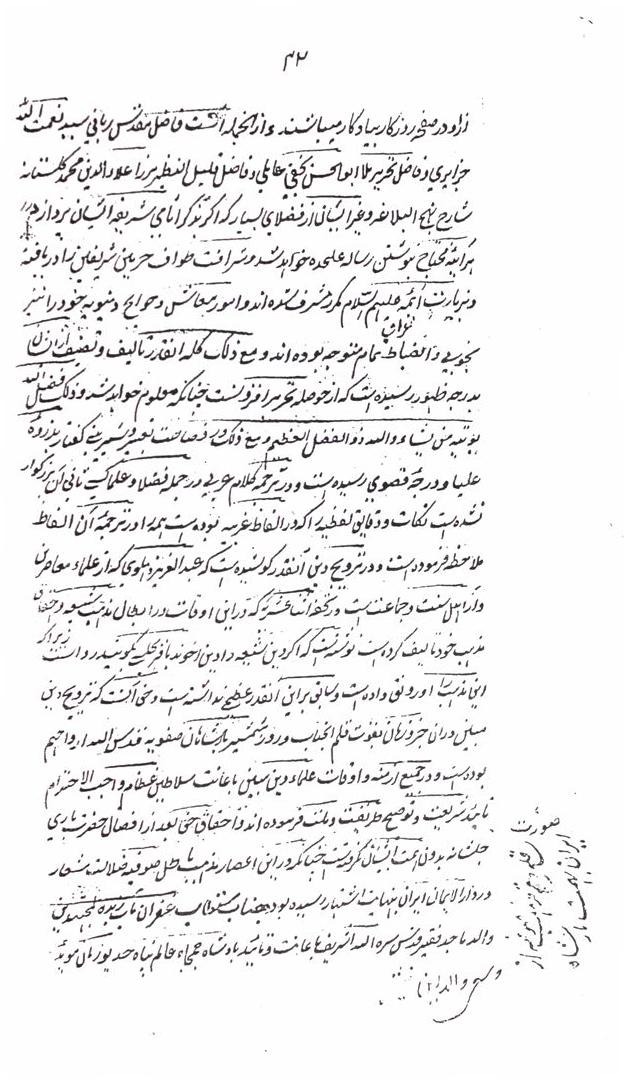 ۴۲
ازو در صفحه روزگار بیادگار میباشند و از انجمله است فاضل مقدس ربانی سید نعمت الله
جزایری و فاضل نحریر ملا ابوالحسن نجفی عاملی و فاضل قلیل النظیر میرزا علاء الدین محمد گلستانه
شارح نهج البلاغه و غیر ایشان از فضلای بسیار که اگر بذکر اسامی شریفه ایشان پردازد
هر آینه محتاج بنوشتن رساله علیحده خواهد شد و شرافت طواف حرمین شریفین را دریافته
و بزیارت ائمه علیهم السلام مکرر مشرف شده اند و امور معاش و حوایج دنیویه خود را نیز
بخوبی و انضباط تمام متوجه بوده اند و مع ذلک کله انقدر تالیف و تصنیف از ایشان
بدرجه ظهور رسیده است که از حوصله تحریر افزونست چنانکه معلوم خواهد شد و ذلک فضل الله
یؤتیه من یشاء والله ذو الفضل العظیم و مع ذلک در فصاحت تعبیر و شیرینی گفتار بذروه
علیا و درجه قصوی رسیده است و در ترجمه کلام عربی در جمله فضلا و علما کسی ثانی آن بزرگوار
نشده است نکات و دقایق لفظیه را که در الفاظ عربیه بوده است همه را در ترجمه آن الفاظ
ملاحظه فرموده است و در ترویج دین آنقدر کوشیده است که عبد العزیز دهلوی که از علماء معاصرین
و از اهل سنت و جماعت است در تحفه اثنا عشریه که در این اوقات در ابطال مذهب شیعه و
مذهب خود تالیف کرده است نوشته است که اگر دین شیعه را دین اخوند باقر مجلسی بگویند روا است زیرا که
این مذهب را او رونق داده است و سابق بر این آنقدر عظمی نداشته است و حق آنست که ترویج دین
مبین در ان جزو زمان بقوت قلم آنجناب و زور شمشیر پادشاهان صفویه قدس الله ارواحهم
بوده است و در جمیع ازمنه و اوقات علماء دین مبین باعانت سلاطین عظام واجب الاحترام
تایید شریعت و توضیح طریقت و ملت فرموده اند و احقاق حق بعد از افضال حضرت باری
جل شانه بدون همت ایشان نکرده است چنانکه در این اعصار مذهب باطل صوفیه ضلالت شعار
در دار الایمان ایران بنهایت اشتهار رسیده بود جناب مستطاب غفران مآب زبده المجتهدین
والد ماجد فقیر قدس سره الله الشریف باعانت و تایید پادشاه جمجاه عالم پناه خدیو زمان موید
صورت
ایران بهمت پادشاه